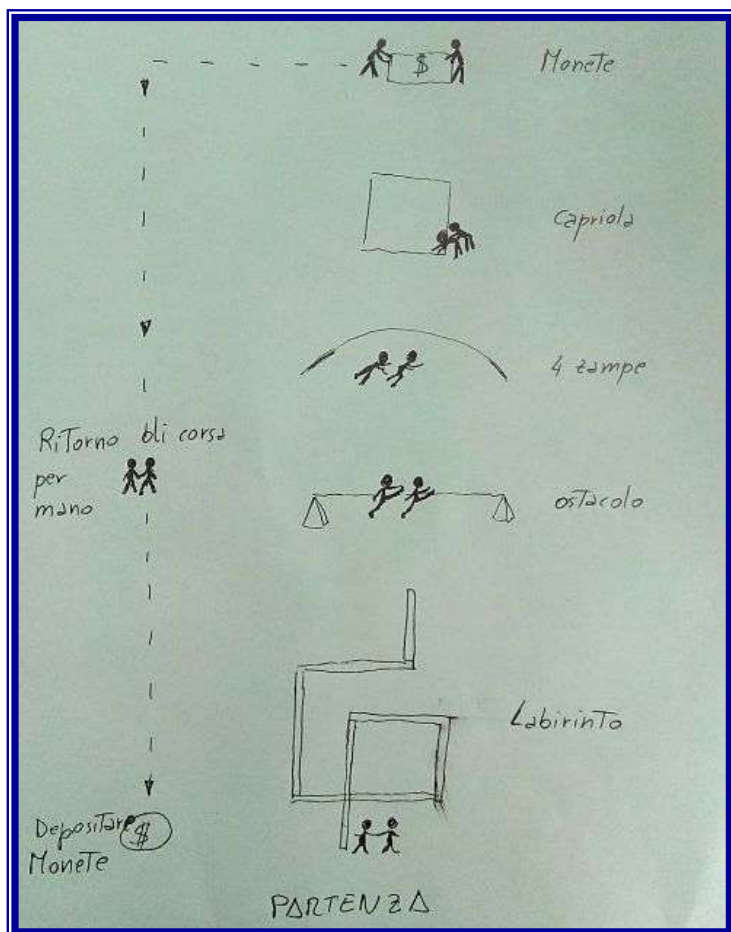 $ Monete
Capriola
4 zampe
Ritorno di corsa
per
mano
ostacolo
Labirinto
Depositare $
Monete
PARTENZA